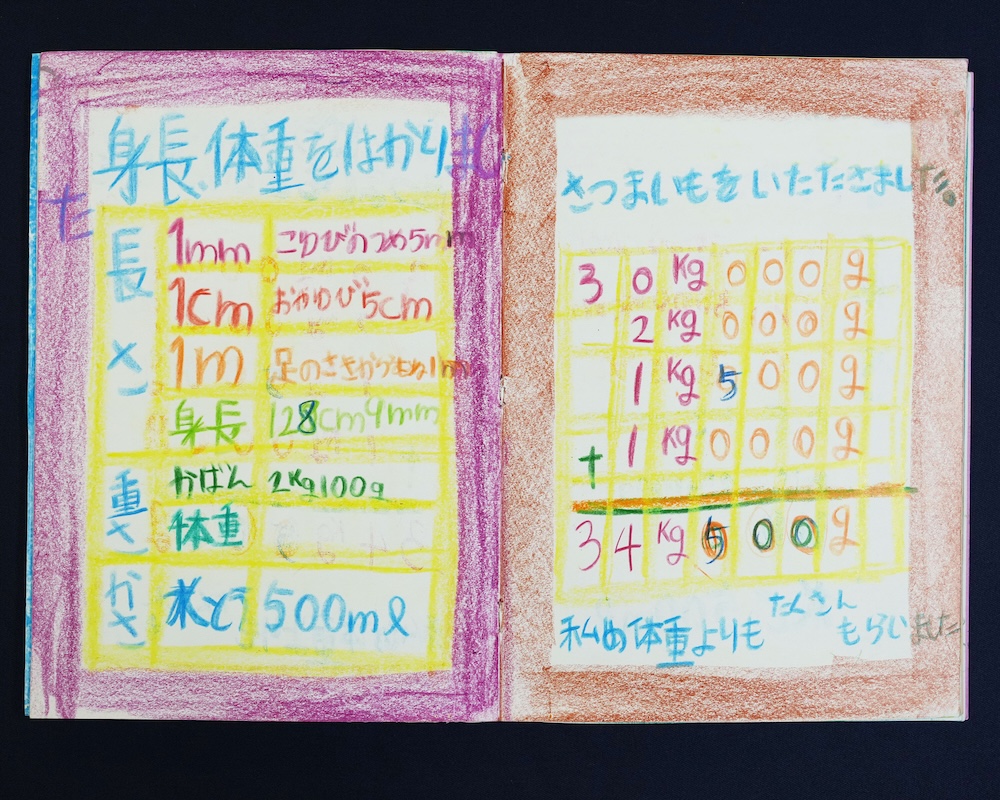 身長、体重をはかりまし
た
長さ
1mm こゆびのつめ5mm
1cm おやゆび5cm
1m 足のさきからむね1m
身長 128cm9mm
重さ
かばん 2kg100g
体重
かさ
水とう 500ml
さつまいもをいただきました。
30kg000g
2kg000g
1kg500g
+1kg000g
34kg500g
私の体重よりも
たくさん
もらいました